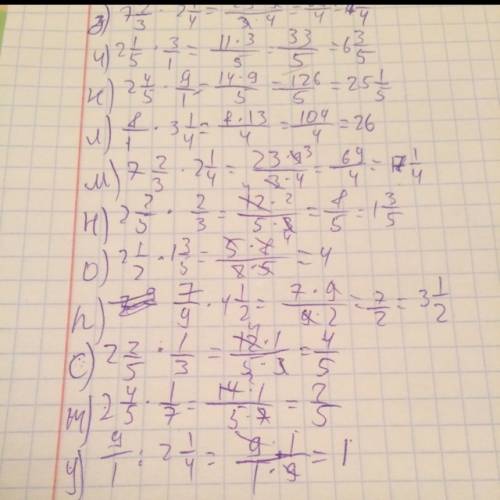 з) 7 2/3 · 2 1/4 =
и) 2 1/5 · 3/1 = 11·3/5 = 33/5 = 6 3/5
к) 2 4/5 · 9/1 = 14·9/5 = 126/5 = 25 1/5
л) 8/1 · 3 1/4 = 8·13/4 = 104/4 = 26
м) 7 2/3 · 2 1/4 = 23·9 3/3·4 = 69/4 = 1/4
н) 2 2/5 · 2/3 = 12·2/5·3 = 8/5 = 1 3/5
о) 2 1/2 · 1 3/5 = 5·8 4/2·5 = 4
п) 7/9 · 4 1/2 = 7·9/9·2 = 7/2 = 3 1/2
с) 2 2/5 · 1/3 = 12·1/5·3 = 4/5
т) 2 4/5 · 1/7 = 14 2·1/5·7 = 2/5
у) 9/1 : 2 1/4 = 9·1/1·9 = 1